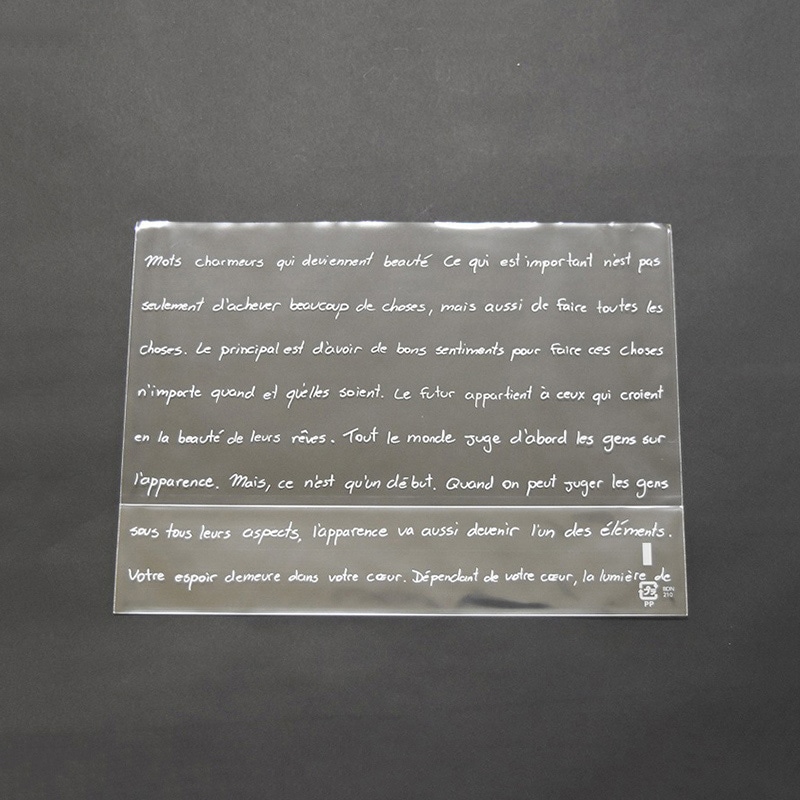 Mots charmeurs qui deviennent beauté Ce qui est important n'est pas
seulement d'achever beaucoup de choses, mais aussi de faire toutes les
choses. Le principal est d'avoir de bons sentiments pour faire ces choses
n'importe quand et qu'elles soient. Le futur appartient à ceux qui croient
en la beauté de leurs rêves. Tout le monde juge d'abord les gens sur
l'apparence. Mais, ce n'est qu'un début. Quand on peut juger les gens
sous tous leurs aspects, l'apparence va aussi devenir l'un des éléments.
Votre espoir demeure dans votre cœur. Dépendant de votre cœur, la lumière de
プラ
PP
BDN
210